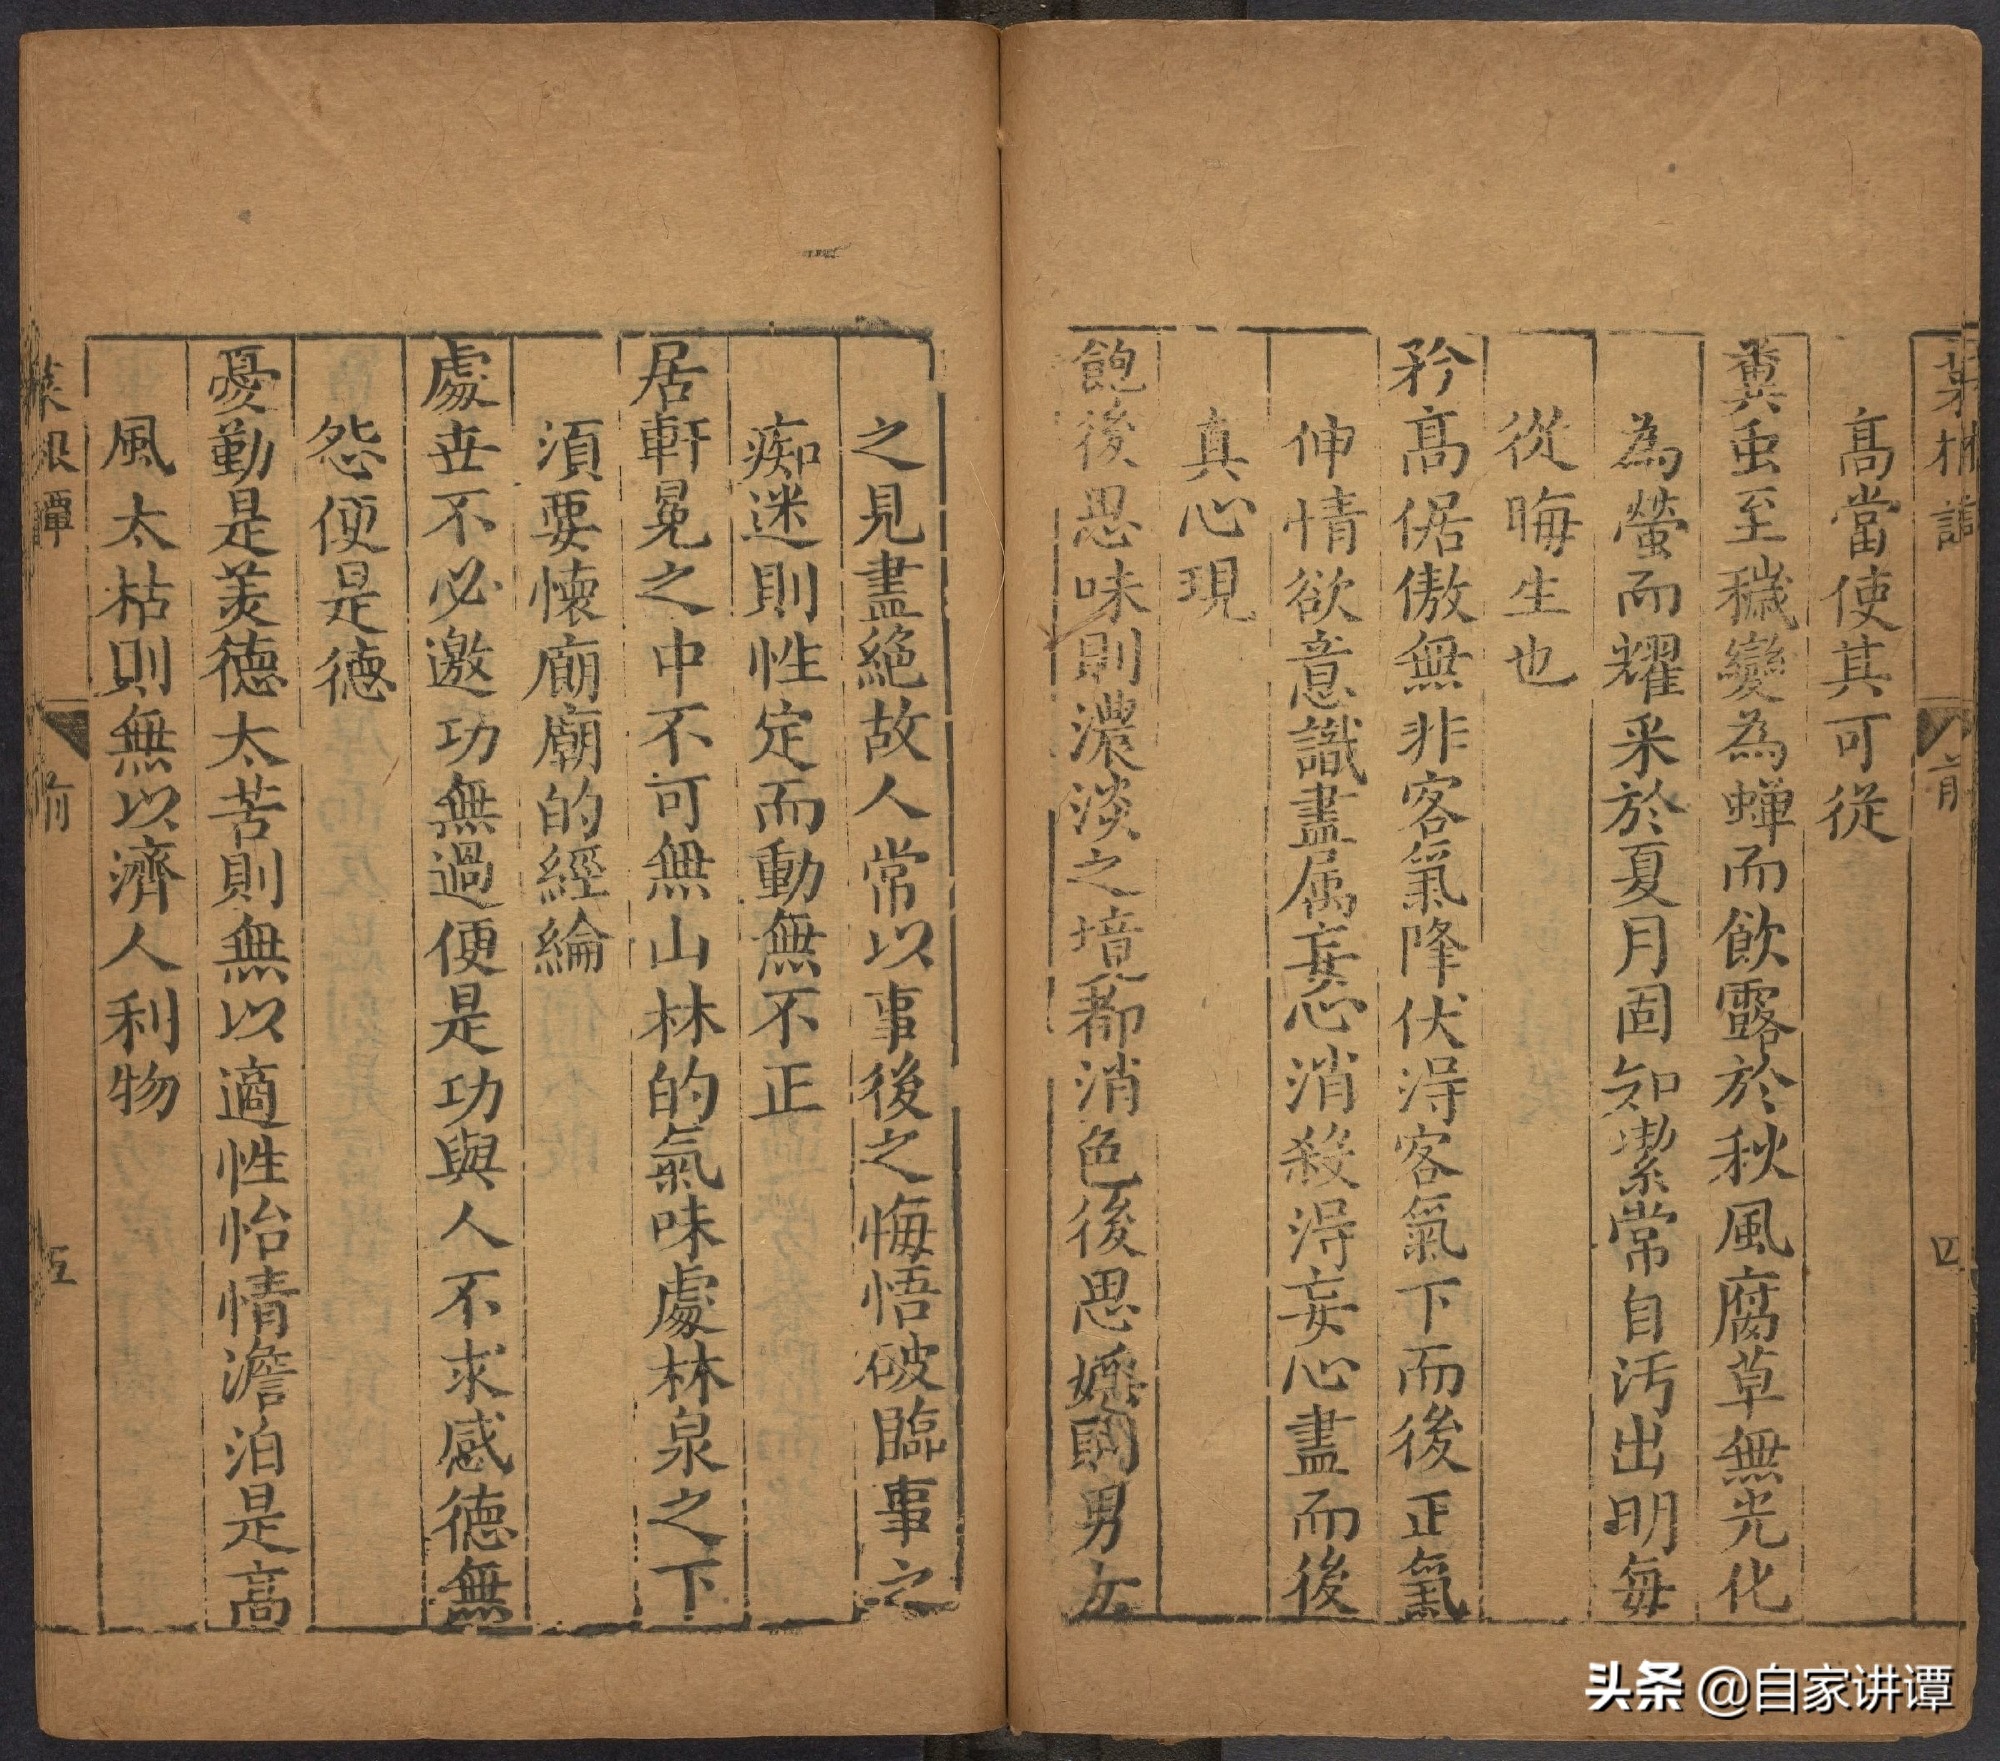 菜根譚 前 四
高當使其可從
糞虫至穢變為蟬而飲露於秋風腐草無光化
為螢而耀采於夏月固知潔常自汚出明每
從晦生也
矜高倨傲無非客氣降伏得客氣下而後正氣
伸情欲意識盡属妄心消殺得妄心盡而後
真心現
飽後思味則濃淡之境都消色後思婬則男女
之見盡絶故人常以事後之悔悟破臨事之
痴迷則性定而動無不正
居軒冕之中不可無山林的氣味處林泉之下
須要懷廊廟的經綸
處世不必邀功無過便是功與人不求感德無
怨便是德
憂勤是美德太苦則無以適性怡情澹泊是高
風太枯則無以濟人利物
菜根譚 前 五
头条 @自家讲谭